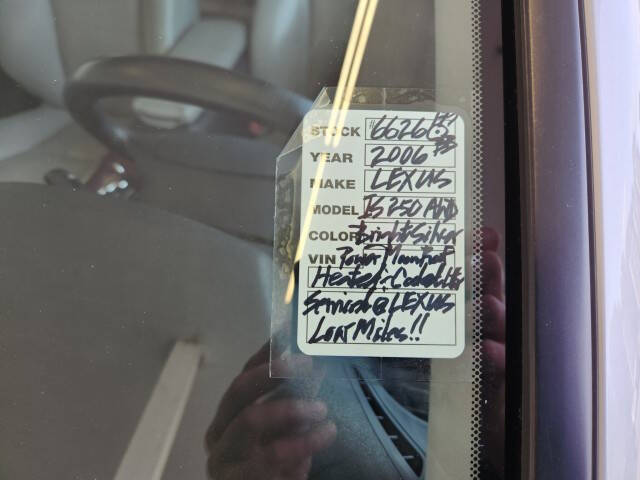 STOCK 6626
YEAR 2006
MAKE LEXUS
MODEL IS 250 AWD
COLOR Bright Silver
VIN Power Moonroof
Heated & Cooled
Serviced @ LEXUS
Low Miles!!